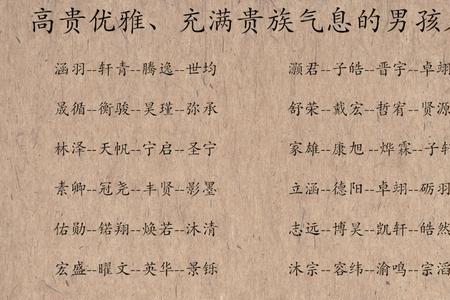 高贵优雅、充满贵族气息的男孩
涵羽--轩青--腾逸--世均
灏君--子皓--晋宇--卓翊
晟循--衡骏--昊瑾--弥承
舒荣--戴宏--哲宥--贤源
林泽--天帆--宁启--圣宁
家雄--康旭--烨霖--子轩
素卿--冠尧--丰贤--影墨
立涵--德阳--卓翊--砺羽
佑勋--锘翔--焕若--沐清
志远--博昊--凯轩--皓然
宏盛--曜文--英华--景铄
沐宗--容纬--渝鸣--宗滔